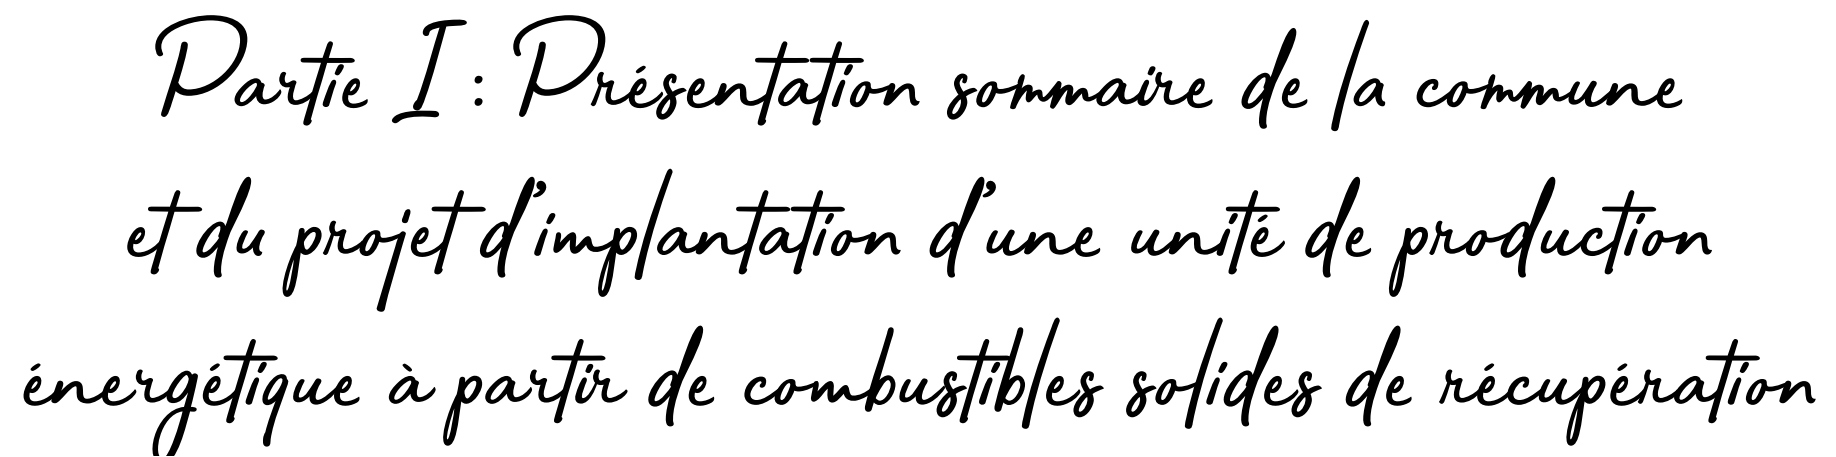 Partie I : Présentation sommaire de la commune
et du projet d'implantation d'une unité de production
énergétique à partir de combustibles solides de récupération